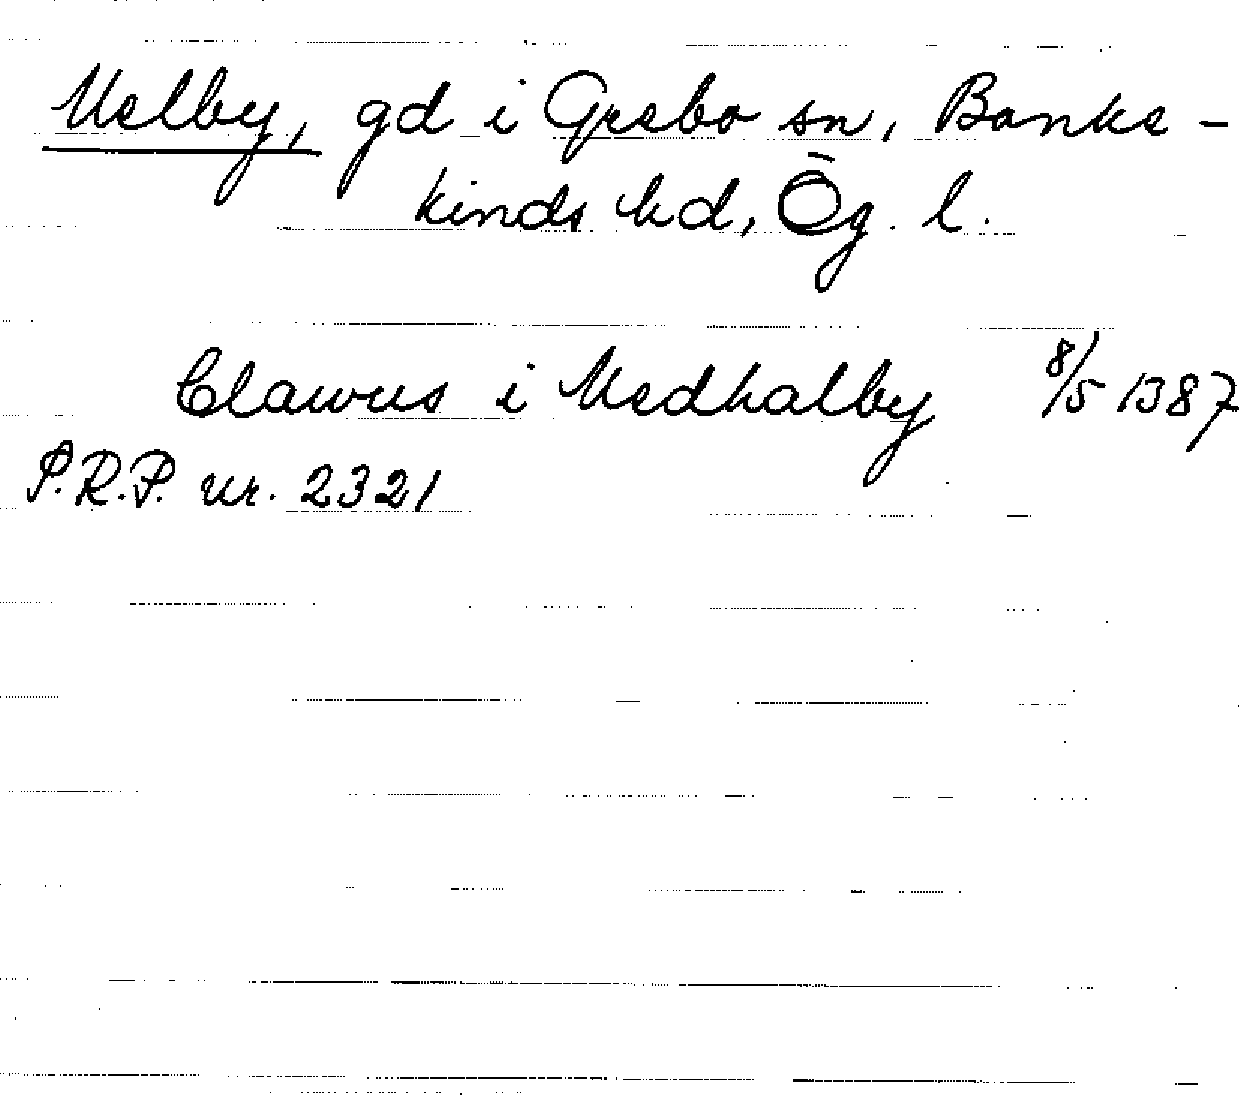 Melby, gd i Grebo sn, Banke-
kinds hd, Ög. l.
Clawus i Medhalby 8/5 1387
S.R.P. nr. 2321